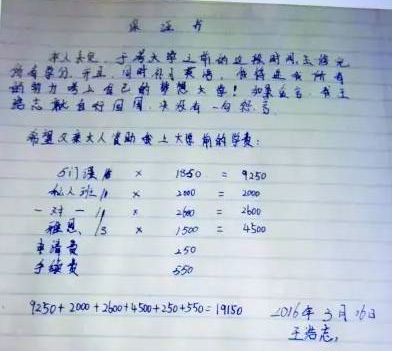 保证书
本人承诺,于考大学之前的这段时间,去修完
所有学分,并且,同时补习英语,
的努力考上自己的梦想大学!如果 王
浩志就自好回国,决没有一句怨言
希望父亲大人资助我上大学前的学费:
5门课 × 1850 = 9250
私人班/1 × 2000 = 2000
一对一/1 × 2600 = 2600
雅思/3 × 1500 = 4500
申请费 250
手续费 550
9250+2000+2600+4500+250+550=19150 2016年3月16日
王浩志,